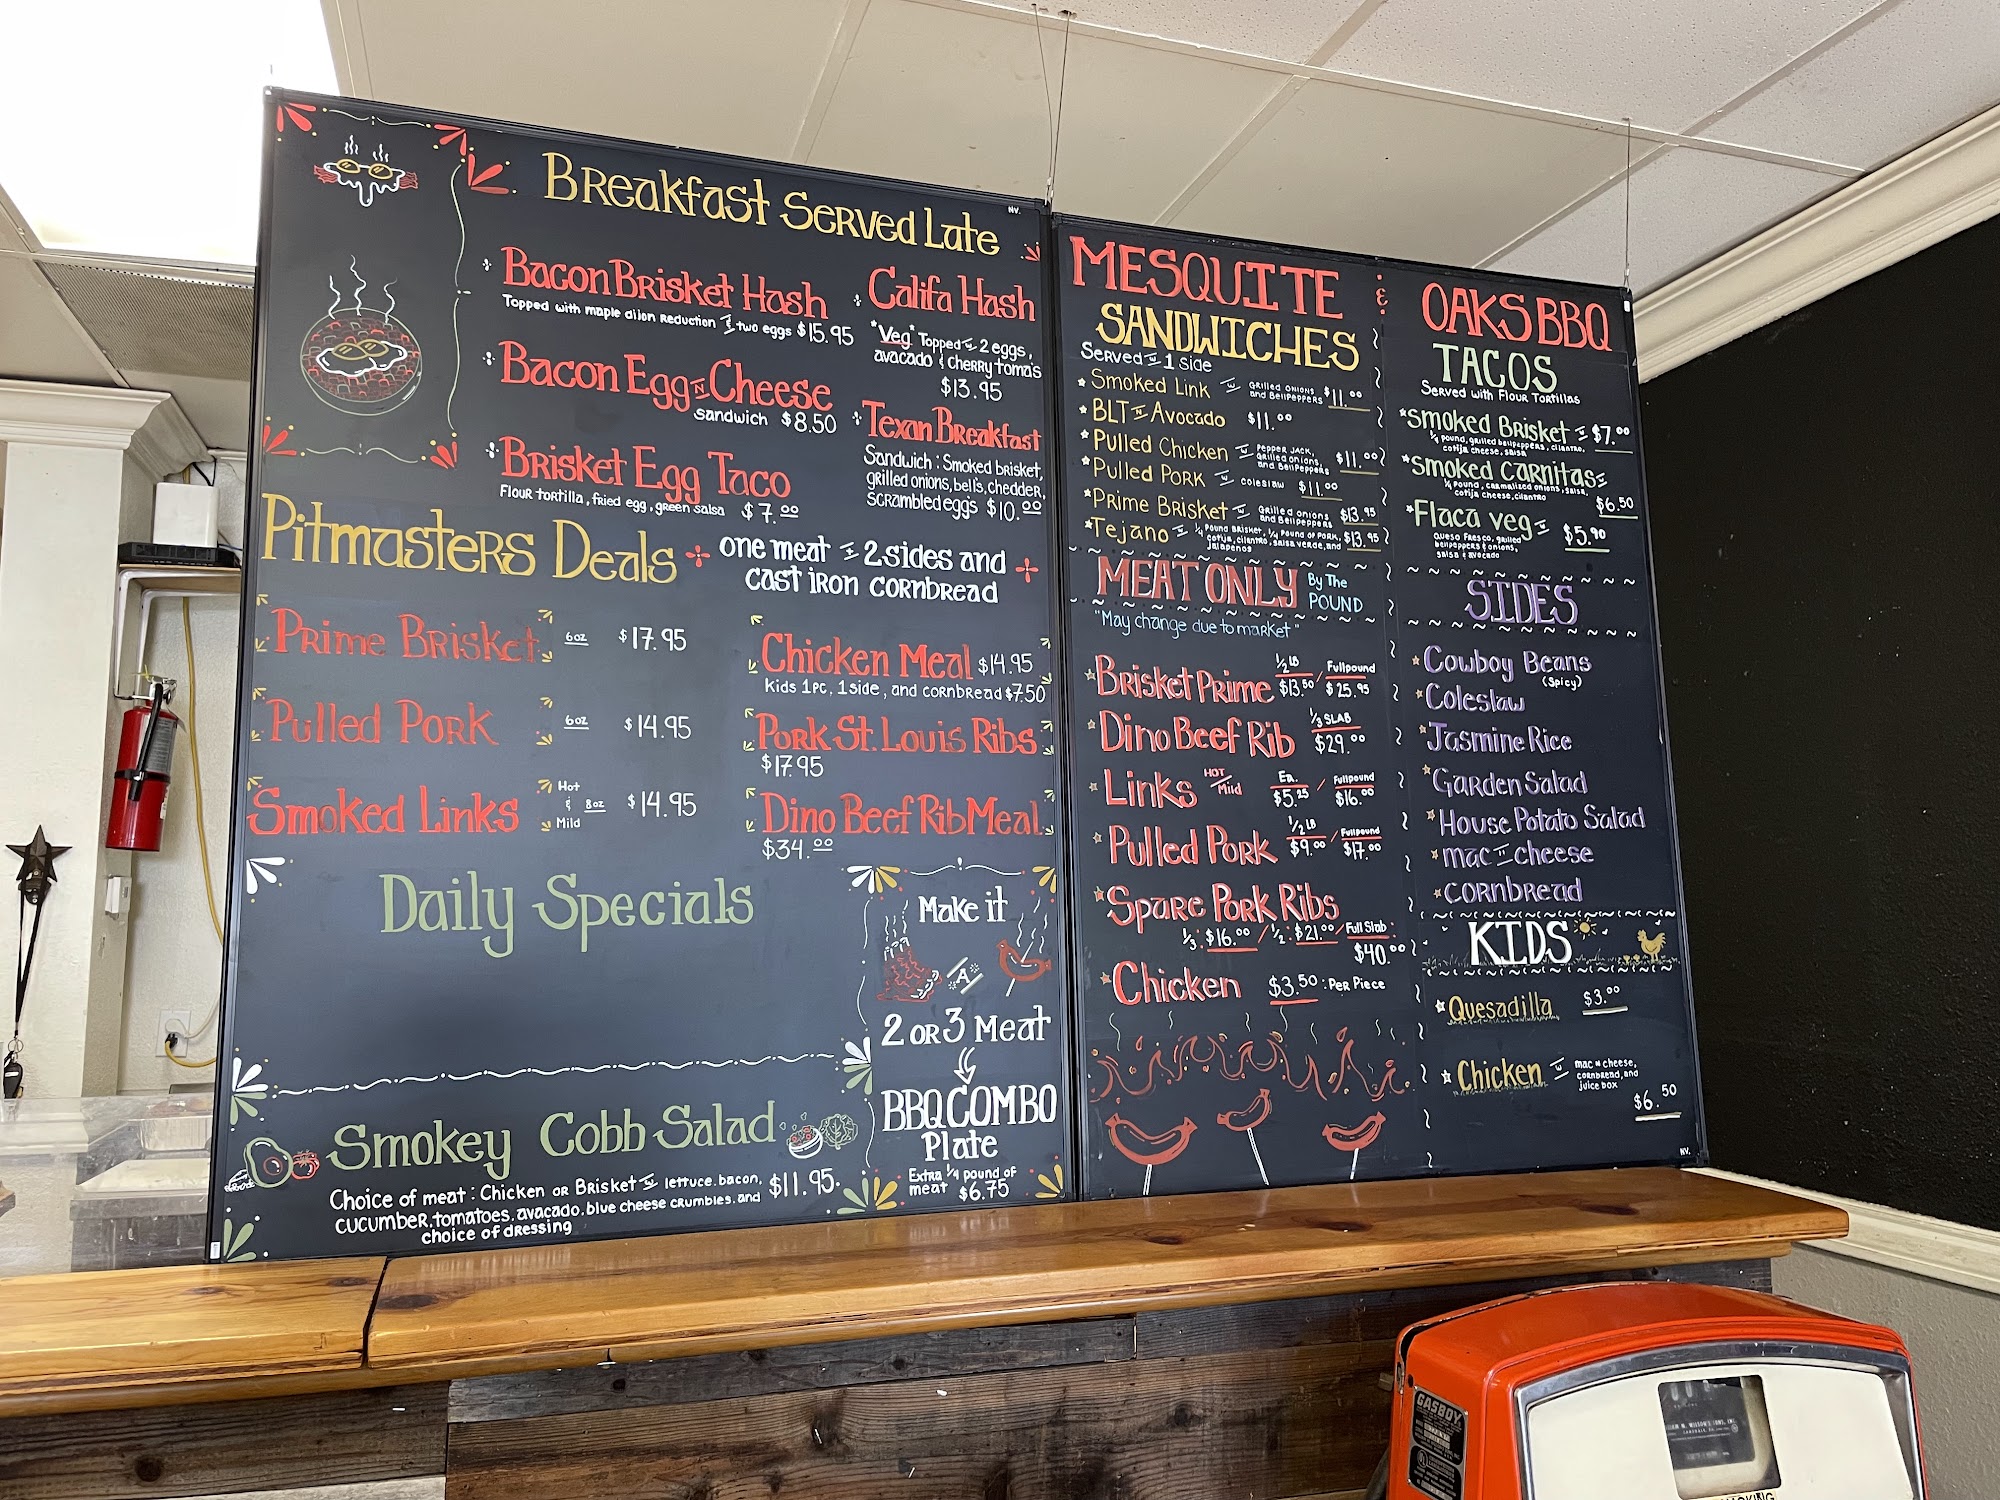 NV.
Breakfast Served Late
Bacon Brisket Hash
Topped with maple dijon reduction & two eggs $15.95
Bacon Egg N Cheese
Sandwich $8.50
Brisket Egg Taco
Flour tortilla, fried egg, green salsa $7.00
Califa Hash
"Veg" Topped w 2 eggs,
avacado & cherry toma's
$13.95
Texan Breakfast
Sandwich: Smoked brisket,
grilled onions, bell's, chedder,
scrambled eggs $10.00
Pitmasters Deals
one meat & 2 sides and
cast iron cornbread
Prime Brisket 6oz $17.95
Pulled Pork 6oz $14.95
Smoked Links Hot & Mild 8oz $14.95
Chicken Meal $14.95
Kids 1pc, 1 side, and cornbread $7.50
Pork St. Louis Ribs
$17.95
Dino Beef Rib Meal
$34.00
Daily Specials
Make it
A
2 or 3 Meat
BBQ COMBO
Plate
Extra 1/4 pound of
meat $6.75
Smokey Cobb Salad
Choice of meat: Chicken or Brisket w lettuce, bacon, $11.95
cucumber, tomatoes, avacado, blue cheese crumbles, and
choice of dressing
MESQUITE & OAKS BBQ
SANDWICHES
Served w 1 side
Smoked Link w Grilled onions and Bellpeppers $11.00
BLT N Avocado $11.00
Pulled Chicken w Pepper Jack, grilled onions, and Bellpeppers $11.00
Pulled Pork w coleslaw $11.00
Prime Brisket w Grilled onions and Bellpeppers $13.95
Tejano w 1/4 pound Brisket, 1/4 Pound of Pork, cotija, cilantro, salsa verde, and jalapenos $13.95
MEAT ONLY By The POUND
"May change due to market"
Brisket Prime 1/2 LB $13.50 / Fullpound $25.95
Dino Beef Rib 1/3 SLAB $29.00
Links HOT/Mild Ea. $5.25 / Fullpound $16.00
Pulled Pork 1/2 LB $9.00 / Fullpound $17.00
Spare Pork Ribs
1/3: $16.00 / 1/2: $21.00 / Full Slab: $40.00
Chicken $3.50: Per Piece
TACOS
Served with Flour Tortillas
Smoked Brisket $7.00
1/4 pound, grilled bellpeppers, cilantro,
cotija cheese, salsa
Smoked Carnitas
1/4 pound, carmalized onions, salsa,
cotija cheese, cilantro $6.50
Flaca veg $5.90
Queso Fresco, grilled
bellpeppers & onions,
salsa & avocado
SIDES
Cowboy Beans
(Spicy)
Coleslaw
Jasmine Rice
Garden Salad
House Potato Salad
mac N cheese
cornbread
KIDS
Quesadilla $3.00
Chicken w mac N cheese, cornbread, and juice box
$6.50
NV.
GASBOY